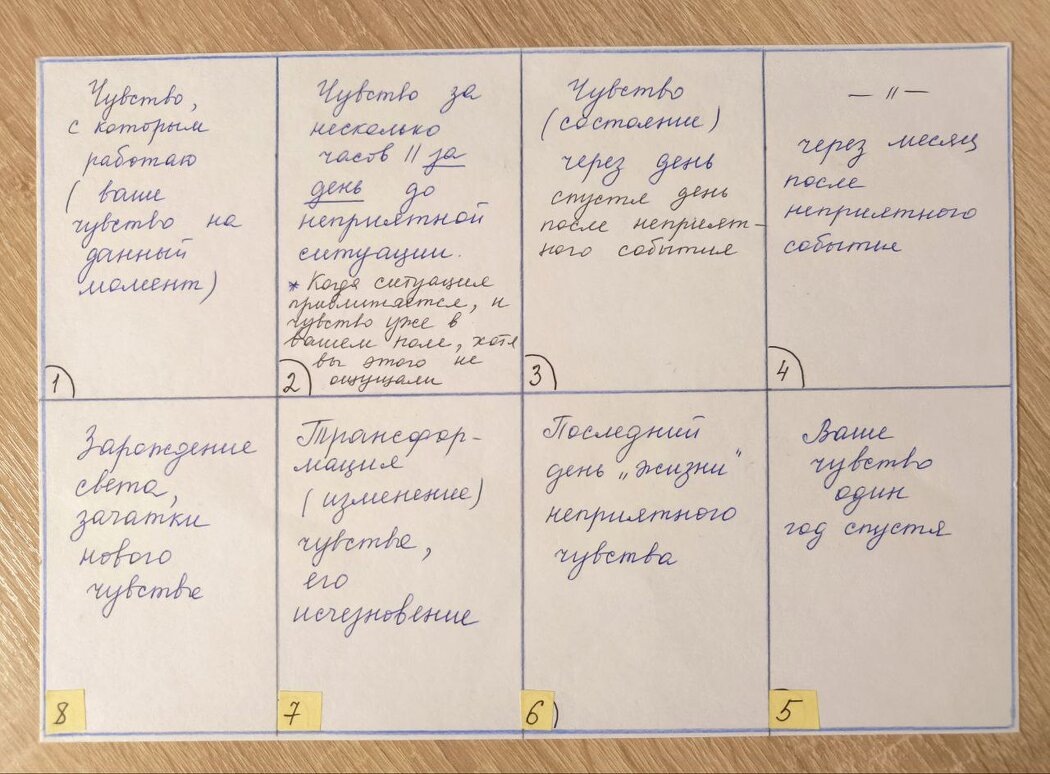 Чувство,
с которым
работаю
(ваше
чувство на
данный
момент)
1
Чувство за
несколько
часов || за
день до
неприятной
ситуации.
* Когда ситуация
приближается, и
чувство уже в
вашем поле, хотя
вы этого не
ощущали
2
Чувство
(состояние)
через день
спустя день
после неприят-
ного события
3
— || —
через месяц
после
неприятного
события
4
Зарождение
света,
зачатки
нового
чувства
8
Трансфор-
мация
(изменение)
чувства,
его
исчезновение
7
Последний
день „жизни"
неприятного
чувства
6
Ваше
чувство
один
год спустя
5